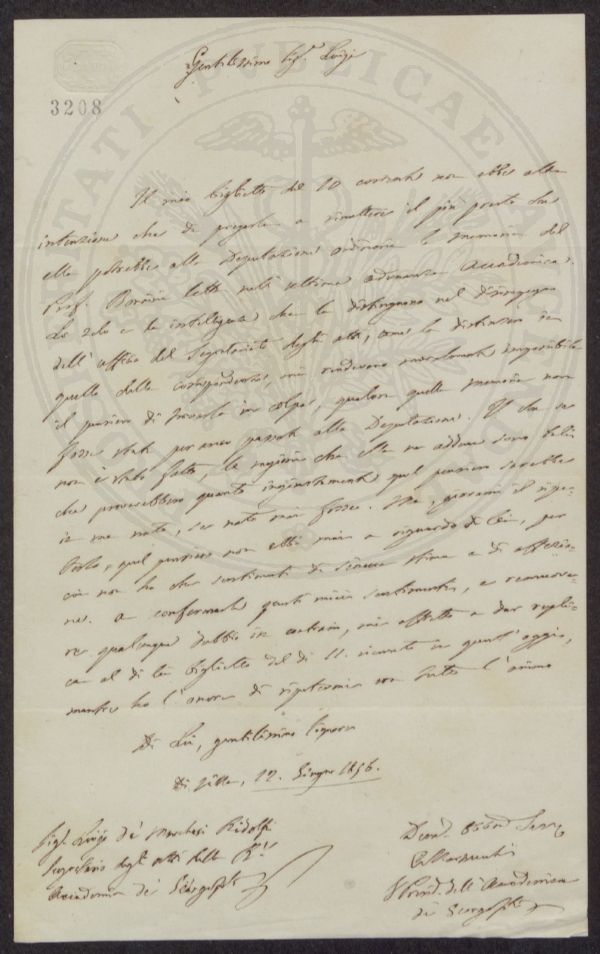 Gentilissimo Sig.r Luigi
3208
Il mio biglietto del 10 corrente non ebbe altra
intenzione che di pregarla a rimettere il più presto che
ella potrebbe alla Deputazione ordinaria la memoria del
Prof. letta nell' ultima adunanza Accademica.
Lo zelo e la intelligenza che la distinguono nel disimpegno
dell' uffizio del Segretariato degli atti, come la distinsero in
quello della corrispondenza, mi rendevano moralmente impossibile
il pensiero di trovarla in colpa, qualora quella memoria non
fosse stata per anco passata alla Deputazione. Il che se
non è stato fatto, le ragioni che ella ne adduce sono tali
che proverebbero quanto ingiustamente quel pensiero sarebbe
in me nato, se nato mai fosse. Ma, giovami il ripe-
terlo, quel pensiero non ebbi mai a riguardo di Lei, per
cui non ho che sentimenti di sincera stima e di affezio-
ne. A confermarle questi miei sentimenti, e rimuove-
re qualunque dubbio in contrario, mi affretto a dar repli-
ca al di lei biglietto del dì 11. ricevuto in quest' oggi,
mentre ho l' onore di ripetermi con tutto l' animo
Di Lei, gentilissimo Signore
Di Villa, 12. Giugno 1856.
Sig.r Luigi de' Marchesi Ridolfi
Segretario degli atti della R.
Accademia de' Georgofili
Devot. Obbmo Serv.
Presid. dell' Accademia
de' Georgofili